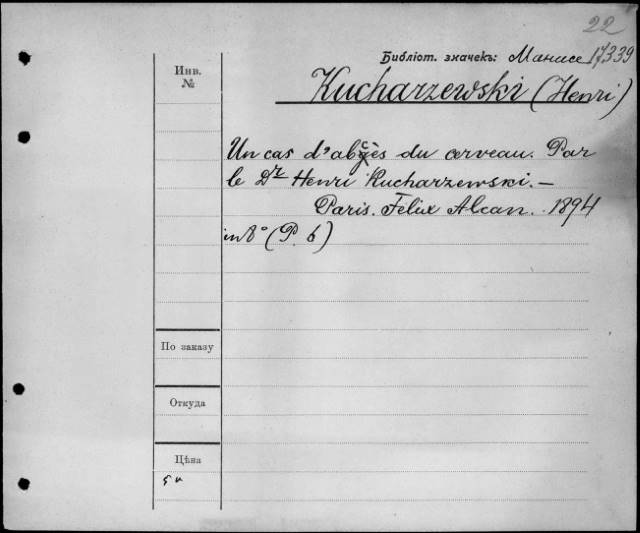 22
Инв. №
Библіот. значекъ: Манисе 17339
Kucharzewski (Henri)
Un cas d'abcès du cerveau. Par
le Dr Henri Kucharzewski. —
Paris. Félix Alcan. 1894
in 8° (P. 6)
По заказу
Откуда
Цѣна